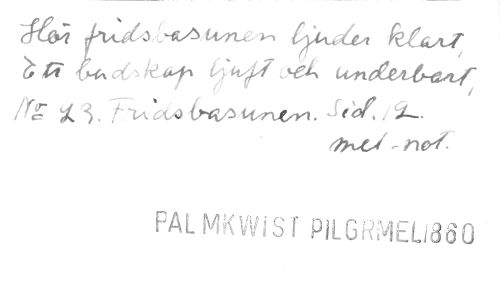 Hör fridsbasunen ljuder klart,
Ett budskap ljuft och underbart,
No 23. Fridsbasunen. Sid. 12.
mel-not.
PALMKWIST PILGRMEL1860